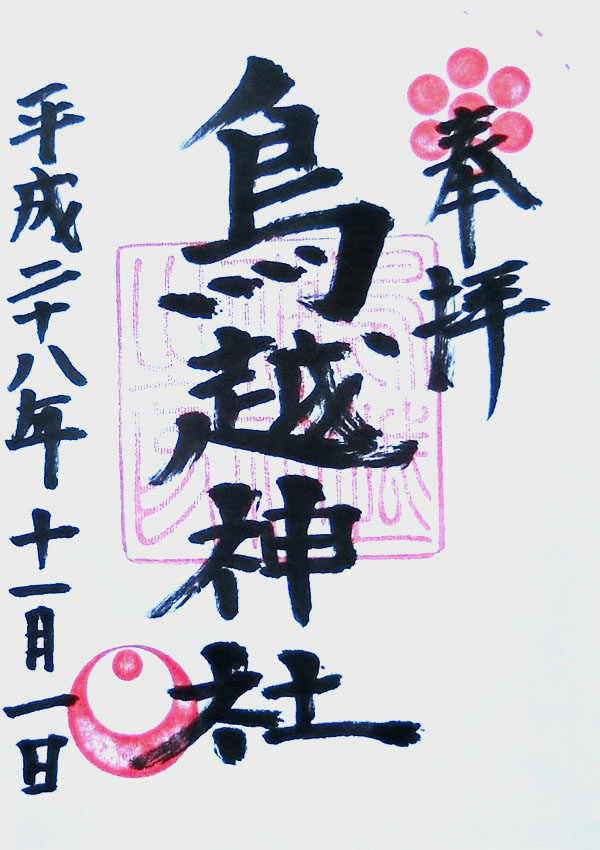 奉拝
鳥越神社
平成二十八年十一月一日